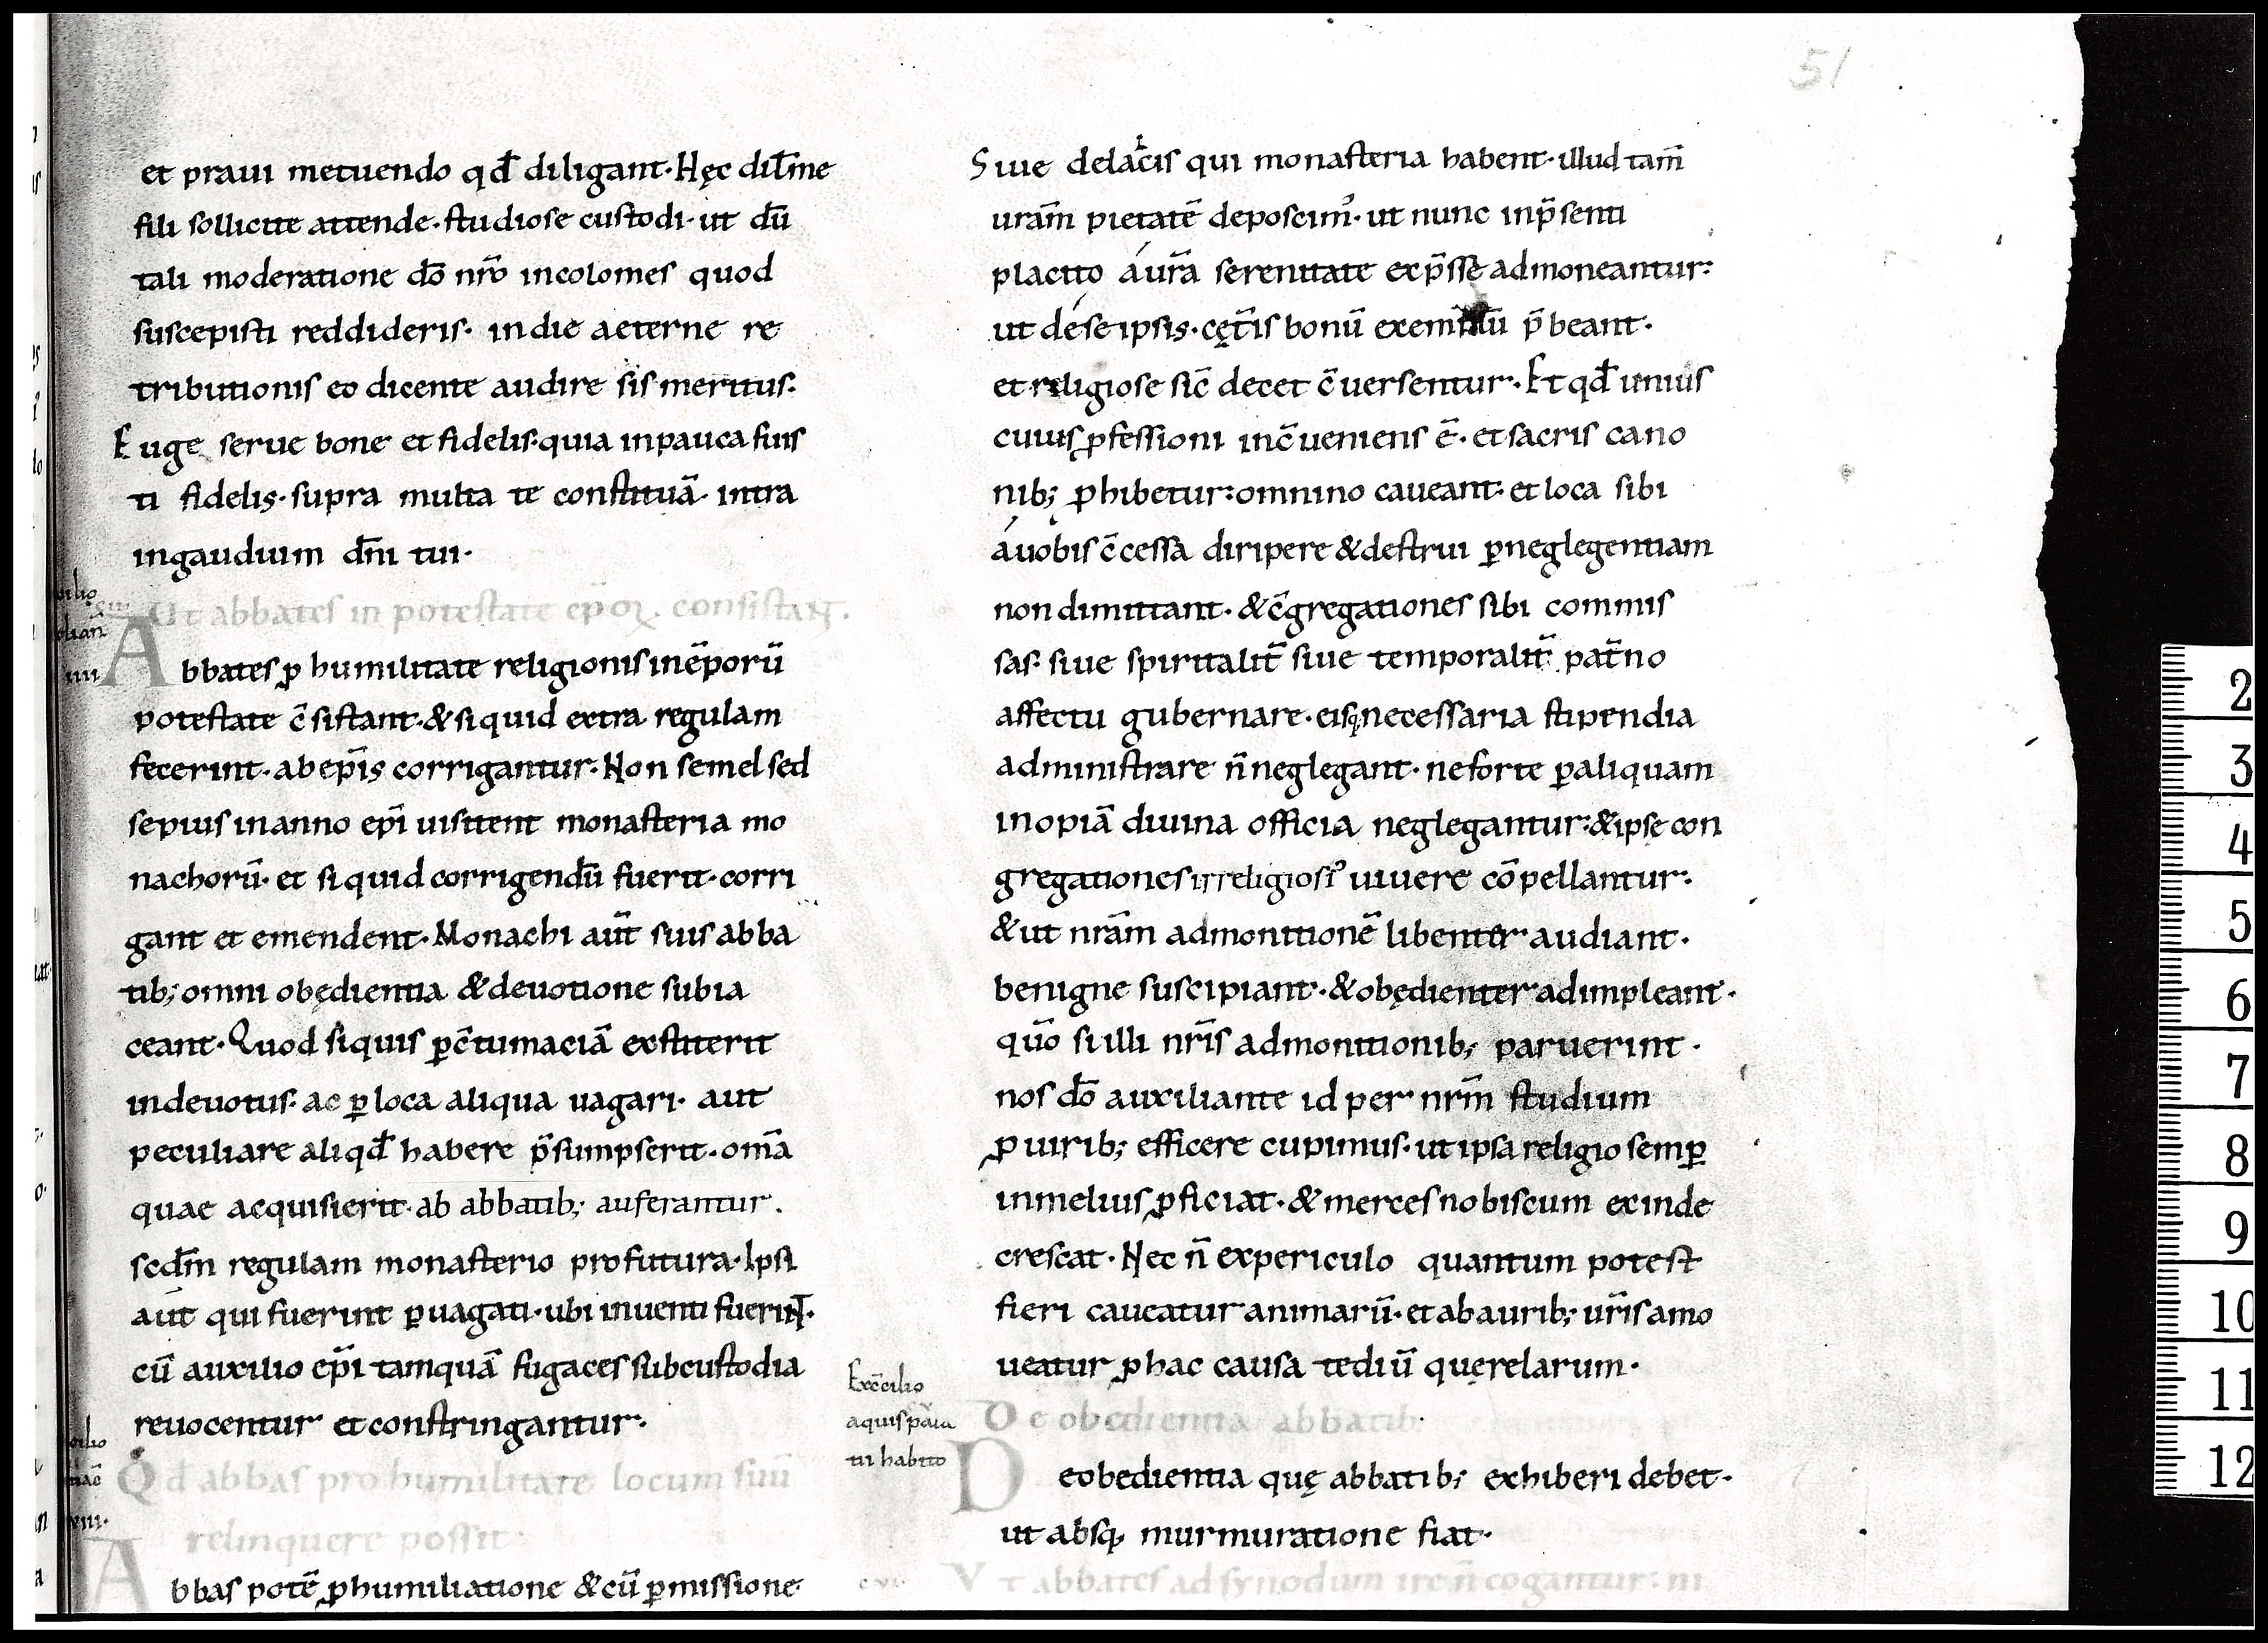 51
et praui metuendo qđ diligant. Hęc dilm̄e
fili sollicite attende. studiose custodi. ut dū
tali moderatione dō nr̄o incolomes quod
suscepisti reddideris. in die aeterne re
tributionis eo dicente audire sis meritus.
Euge serue bone et fidelis. quia in pauca fuis
ti fidelis. supra multa te constituā. intra
in gaudiuim dn̄i tui.
Ut abbates in potestate ep̄oꝝ consistant.
Abbates ꝓ humilitate religionis in ēporū
potestate c̄sistant. & si quid extra regulam
fecerint. ab ep̄is corrigantur. Non semel sed
sepius in anno ep̄i uisitent monasteria mo
nachorū. et si quid corrigendū fuerit. corri
gant et emendent. Monachi aut̄ suis abba
tib; omni obędientia & deuotione subia
ceant. Quod si quis ꝑ c̄tumaciā extiterit
indeuotus. ac ꝑ loca aliqua uagari. aut
peculiare aliqđ habere p̄sumpserit. om̄a
quae acquisierit. ab abbatib; auferantur.
scđm regulam monasterio profutura. Ipsi
aut qui fuerint ꝑuagati. ubi inuenti fuerint.
cū auxilio ep̄i tamquā fugaces sub custodia
reuocentur et constringantur.
Qđ abbas pro humilitate locum suū
relinquere possit.
Abbas potē ꝓ humiliatione & cū ꝑmissione
Siue de laicis qui monasteria habent. illud tam̄
uram̄ pietatē deposcim᾽. ut nunc in p̄senti
placito á ur̄a serenitate exp̄sse admoneantur:
ut dé se ipsis. cęt̄is bonū exemplū p̄beant.
et religiose sic̄ decet c̄uersentur. Et qđ unius
cuius ꝓfessioni inc̄ueniens ē. et sacris cano
nib; ꝓhibetur: omnino caueant. et loca sibi
á uobis c̄cessa diripere & destrui ꝑ neglegentiam
non dimittant. & c̄gregationes sibi commis
sas. siue spiritalit̄ siue temporalit̄ pat̄no
affectu gubernare. eisq; necessaria stipendia
administrare n̄ neglegant. ne forte ꝑ aliquam
inopiā diuina officia neglegantur: & ipse con
gregationes irreligiosi᾽ uiuere cōpellantur.
& ut nram̄ admonitionē libenter audiant.
benigne suscipiant. & obędienter adimpleant.
quō si illi nr̄is admonitionib; paruerint.
nos dō auxiliante id per nrm̄ studium
ꝓ uirib; efficere cupimus. ut ipsa religio semꝑ
in melius ꝓficiat. & merces nobiscum exinde
crescat. Nec n̄ ex periculo quantum potest
fieri caueatur animarū. et ab aurib; ur̄is amo
ueatur ꝓ hac causa tediū querelarum.
Exc̄cilio
aquispala
tii habito
De obedientia abbatib;
De obedientia quę abbatib; exhiberi debet.
ut absq; murmuratione fiat.
cvi.
Vt abbates ad synodum ire n̄ cogantur: ni